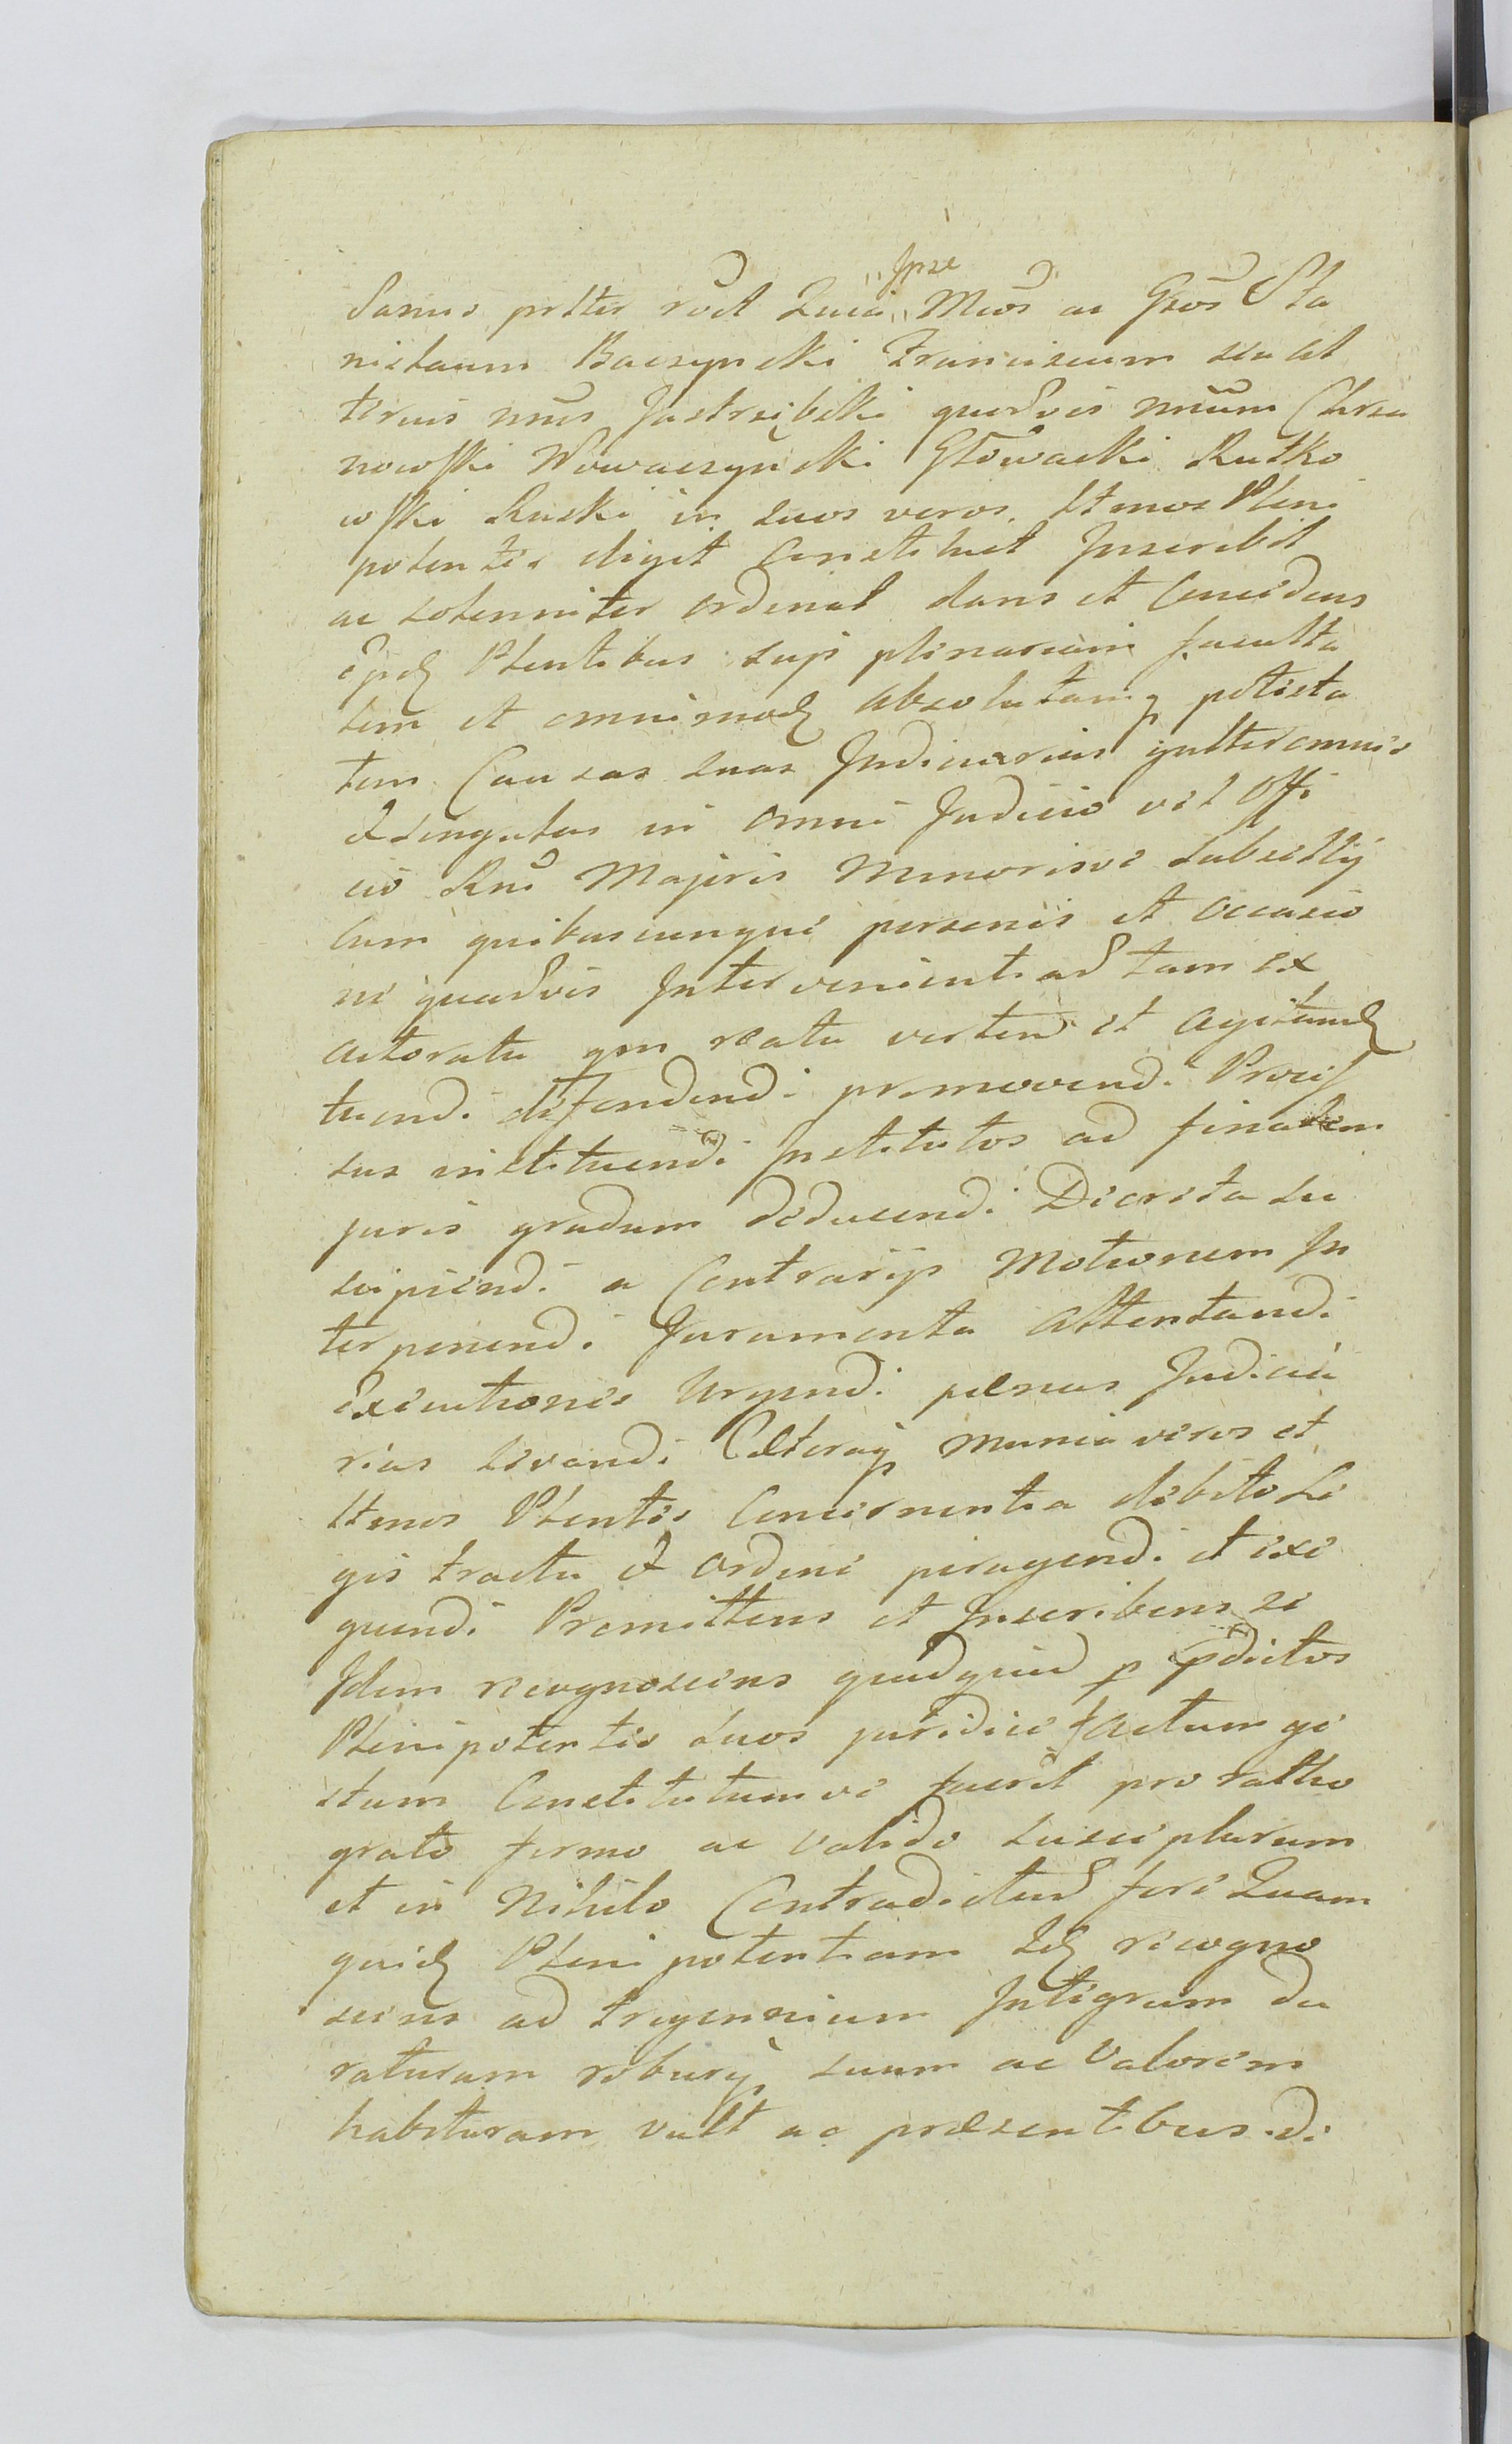 sanus prtter rod Quia „Ipse Mcos ac Gsos Sta
nislaum Baczynski Franciscum seu al
terius nnis Jastrzibski quodvis nnium Chrza
nowski Nowaczynski Głowacki Rutko
wski Ruski in suos veros Ltmos Pleni
potentes eligit Constituit Inscribit
ac solenniter ordinat dans et Concedens
iisd Plentibus suis plenariam faculta
tem et omnimod absolutamq potesta
tem Causas suas Judiciarias gnlter omnes
et singulas in omni Judicio vel Offi
cio Rni Majoris Minorisve subsellij
Cum quibuscunque personis et occasio
ne quadvis Intervenienti ad tam ex
actoratu qm reatu verten et agitand
tuendi defendendi promovendi Proces
sus instituendi Institutos ad finalem
juris gradum deducendi Decreta su
scipiendi a Contrarijs Motionem In
terponendi Juramenta Attentandi
Executiones Urgendi pænas Judicia
rias levandi Cæteraq munia veros et
Ltmos Plentes Concernentia debito Le
gis tractu et ordine peragendi et exe
quendi Promittens et Inscribens se
Idem recognoscens quidquid p pdictos
Plenipotentes suos juridice factum ge
stum Constitutumve fuerit pro ratho
grato firmo ac valido suscipturum
et in Nihilo Contradictur fore Quam
quid Plenipotentiam Id recogno
scens ad trigennium Integrum du
raturam roburq suum ac Valorem
habituram vult ac præsentibus de